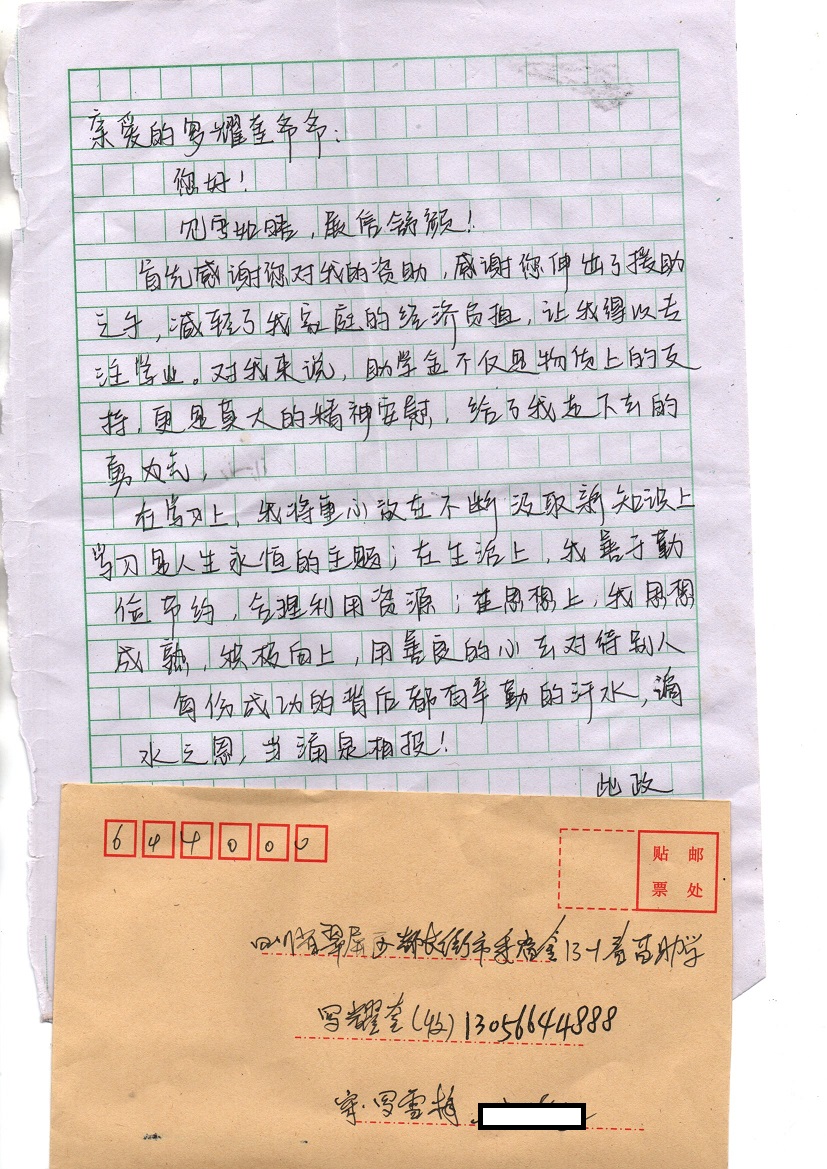 亲爱的罗耀奎爷爷：
您好！
见字如晤，展信舒颜！
首先感谢你对我的资助，感谢你伸出了援助
之手，减轻了我家庭的经济负担，让我得以专
注学业。对我来说，助学金不仅是物质上的支
持，更是莫大的精神安慰，给了我走下去的
勇气，
在学习上，我将重心放在不断汲取新知识上
学习是人生永恒的主题；在生活上，我善于勤
俭节约，合理利用资源；在思想上，我思想
成熟，积极向上，用善良的心去对待别人
每份成功的背后都有辛勤的汗水，滴
水之恩，当涌泉相报！
此致
644000
贴邮
票处
四川省翠屏区 街市委宿舍13-1 助学
罗耀奎(收)13056644888
罗雪梅